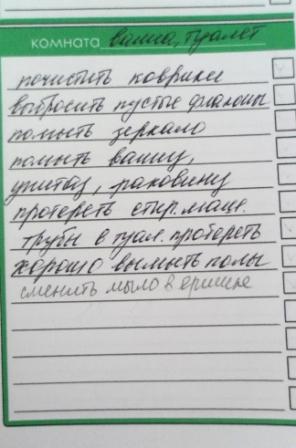 комната ванна, туалет
почистить коврики
выбросить пустые флаконы
помыть зеркало
помыть ванну,
унитаз, раковину
протереть стир. маш.
трубы в туал. протереть
хорошо вымыть полы
сменить мыло в ёршике